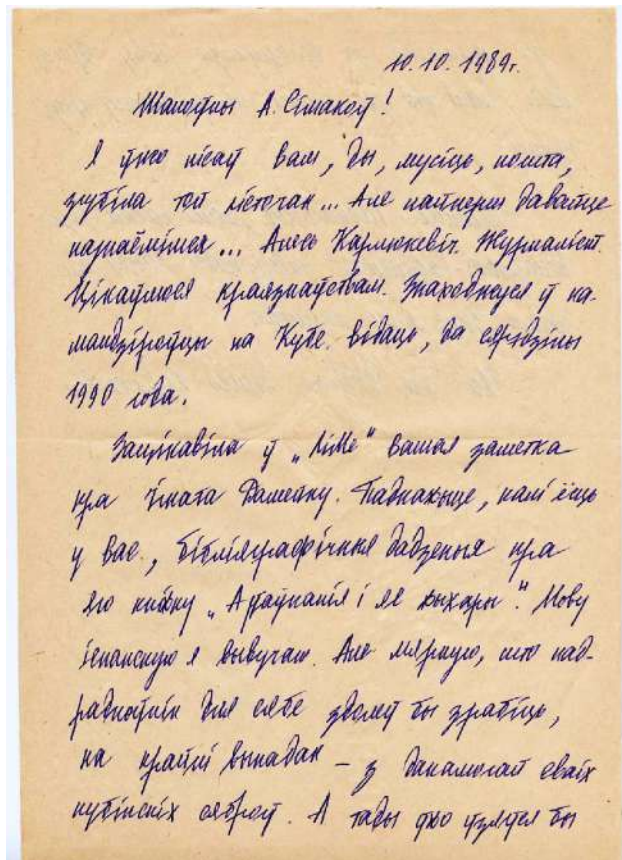 10.10.1989г.
Шаноўны А. Сімакоў!
Я ўжо пісаў вам, ды, мусіць, пошта,
згубіла той лісточак... Але найперш давайце
пазнаёмімся... Алесь Карлюкевіч. Журналіст.
Цікаўлюся краязнаўствам. Знаходжуся ў ка-
мандзіроўцы на Кубе. Відаць, да сярэдзіны
1990 года.
Зацікавіла ў „ЛіМе" вашая заметка
пра Ігната Дамейку. Падкажыце, калі ёсць
у вас, бібліяграфічныя дадзеныя пра
яго кніжку „Араўканія і яе жыхары". Мову
іспанскую я вывучаю. Але мяркую, што пад-
радкоўнік для сябе здолеў бы зрабіць,
на крайні выпадак – з дапамогай сваіх
кубінскіх сяброў. А тады ўжо ўзяўся бы